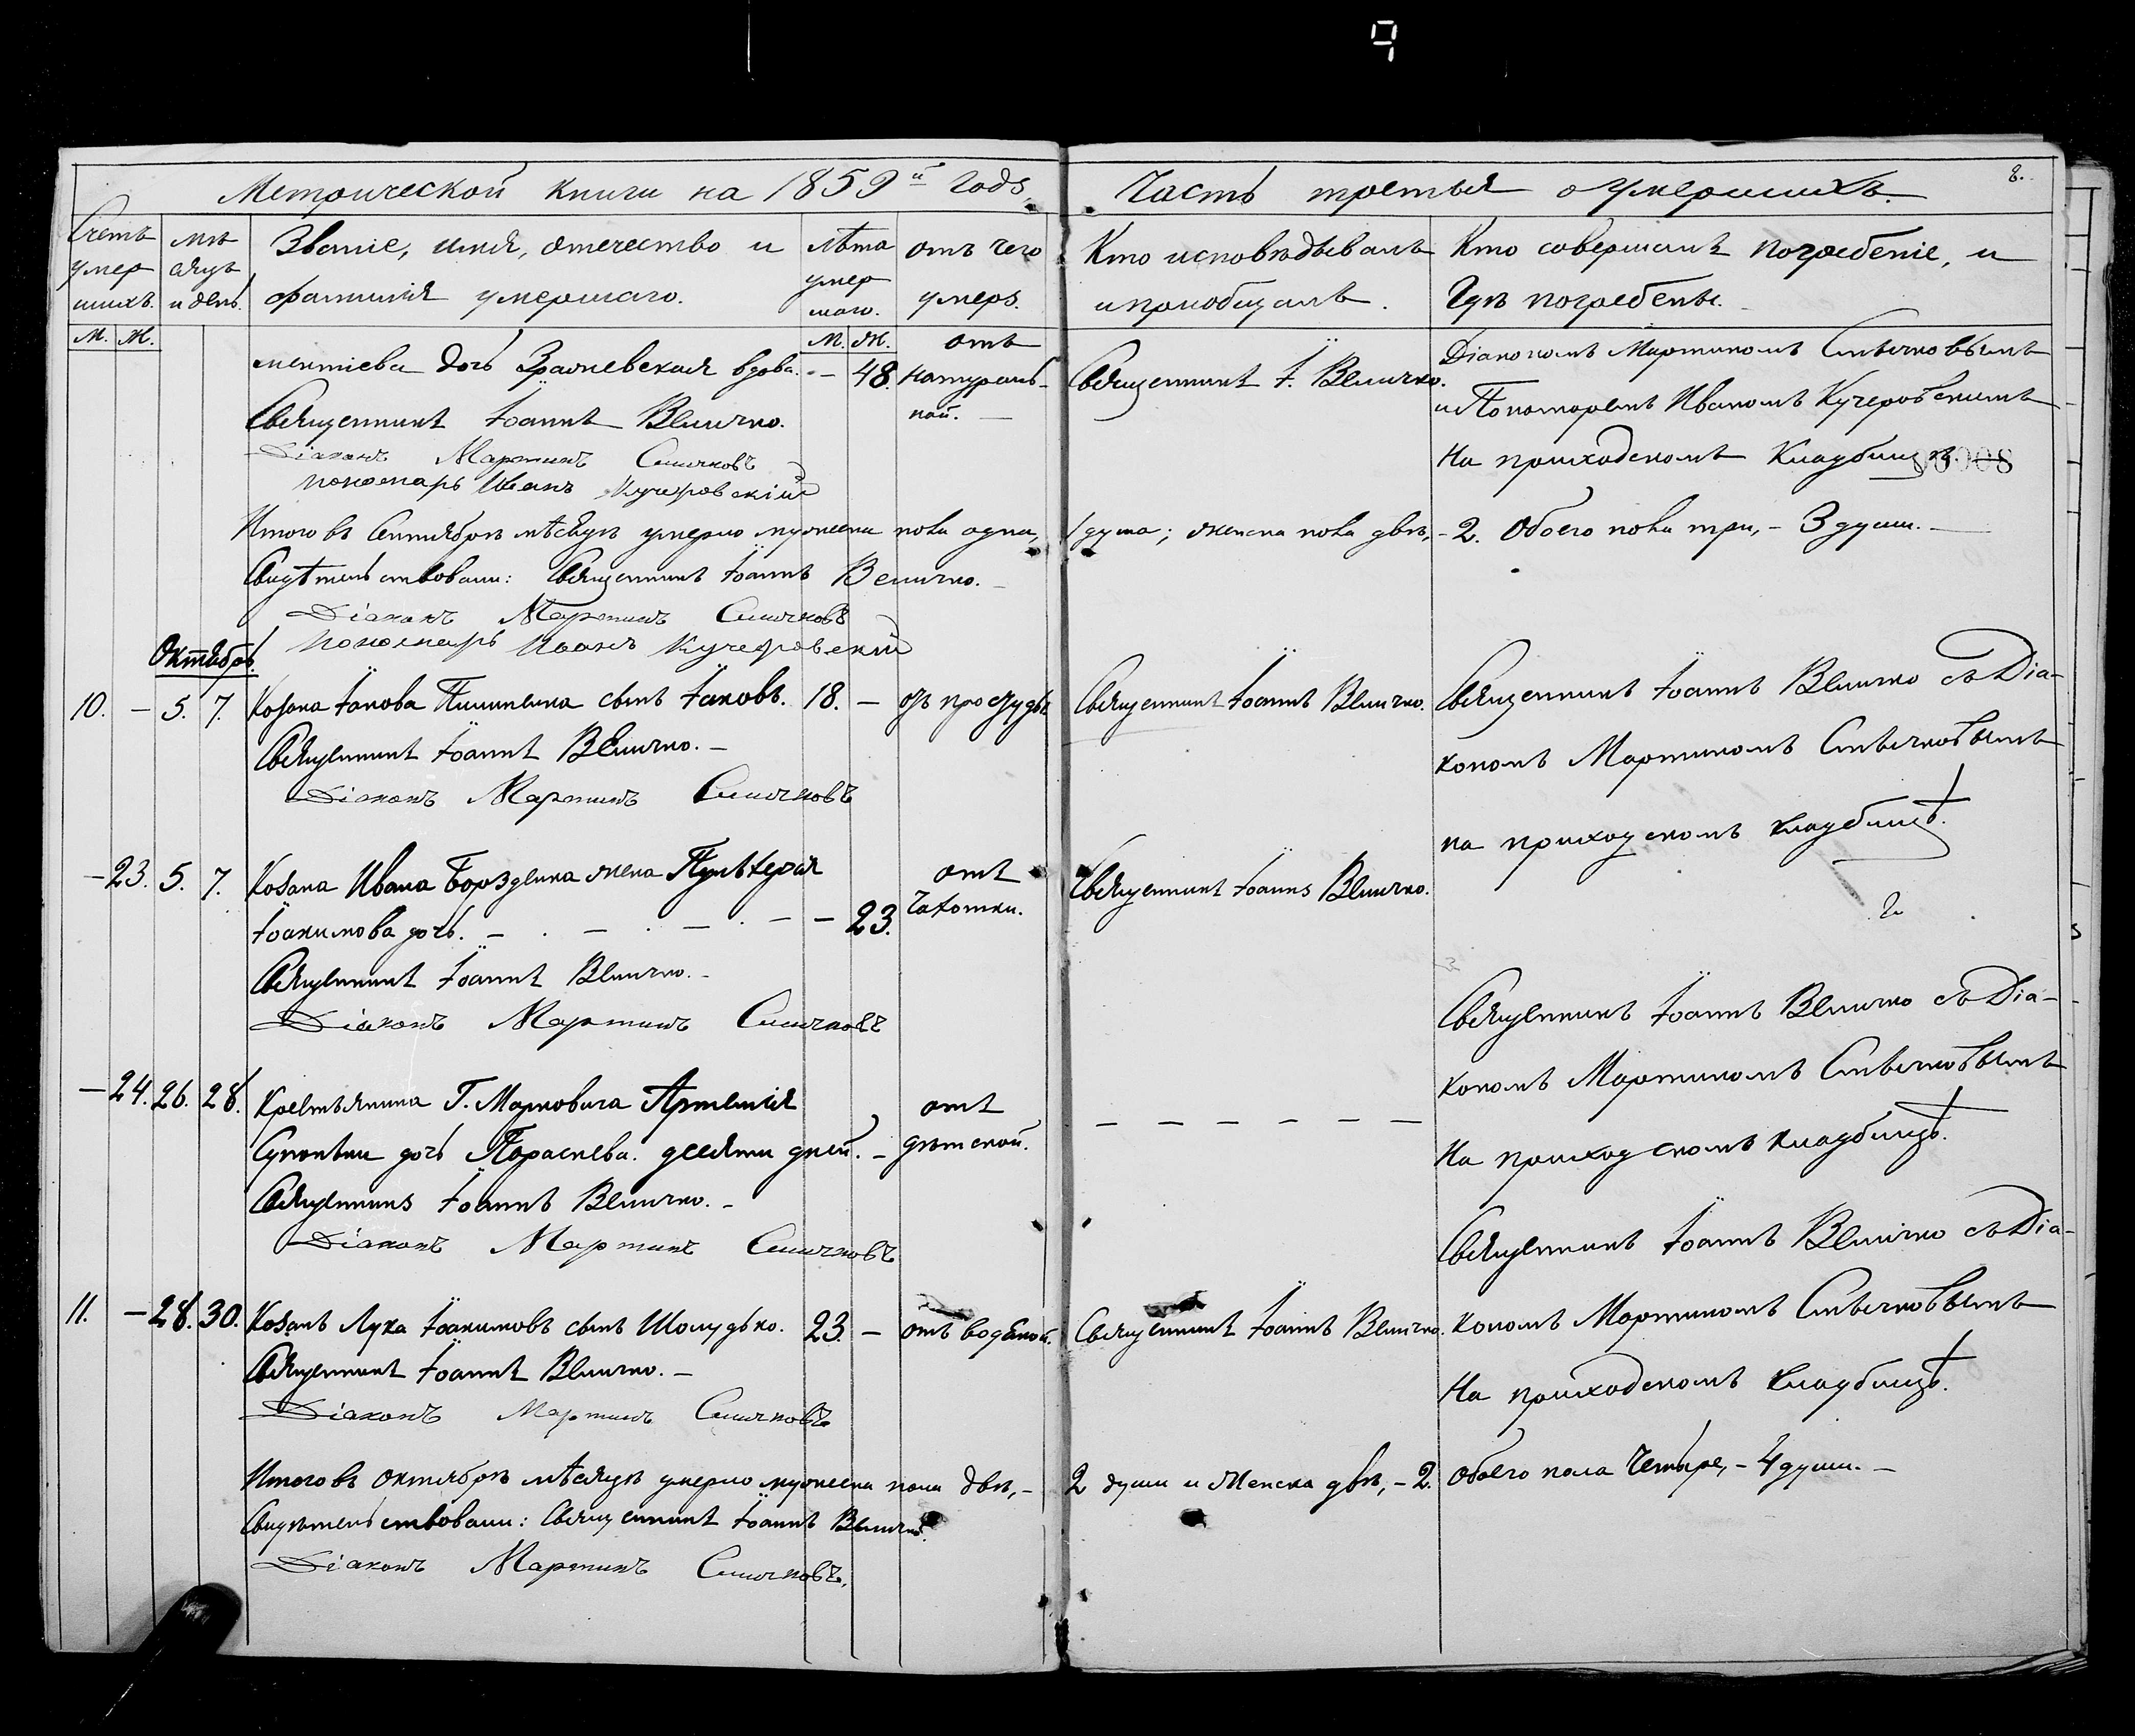 9
8.
Метрической книги на 1859й годъ,
Часть третья о умершихъ.
Счетъ умер шихъ.
М. Ж.
мѣ сяцъ и день.
Званіе, имя, отечество и
фамилія умершаго.
лѣта умер шаго.
М. Ж.
отъ чего
умеръ.
Кто исповѣдывалъ
и пріобщалъ.
Кто совершалъ погребеніе, и
гдѣ погребены.
дочь вдова. - 48.
отъ
натураль-
ной.
Священникъ І. Величко.
Діакономъ Мартиномъ
и Пономаремъ Иваномъ Кучеровскимъ
На приходскомъ кладбищѣ.
00008
Священникъ Іоаннъ Величко.
Діаконъ Мартинъ
Пономарь Иванъ Кучеровскій
Итого въ Сентябрѣ мѣсяцѣ умерло мужеска пола одна, 1 душа; женска пола двѣ, - 2. Обоего пола три, - 3 души.
Свидѣтельствовали: Священникъ Іоаннъ Величко.
Діаконъ Мартинъ
Пономарь Иванъ Кучеровскій
Октябрь.
10. - 5. 7. Козака Іакова сынъ Іаковъ. 18. - отъ простуды
Священникъ Іоаннъ Величко.
Діаконъ Мартинъ
Священникъ Іоаннъ Величко.
Священникъ Іоаннъ Величко съ Діа-
кономъ Мартиномъ
на приходскомъ кладбищѣ.
- 23. 5. 7. Козака Ивана Борзденка жена Пульхерія
Іоакимова дочь. - 23.
отъ
чахотки.
Священникъ Іоаннъ Величко.
Діаконъ Мартинъ
Священникъ Іоаннъ Величко.
Священникъ Іоаннъ Величко съ Діа-
кономъ Мартиномъ
На приходскомъ кладбищѣ.
- 24. 26. 28. Крестьянина Г. Марковича Артемія
дочь Параскева. десяти дней. -
отъ
дѣтской.
Священникъ Іоаннъ Величко.
Діаконъ Мартинъ
Священникъ Іоаннъ Величко съ Діа-
кономъ Мартиномъ
На приходскомъ кладбищѣ.
11. - 28. 30. Козакъ Лука Іоакимовъ сынъ Шолудько. 23. - отъ водяной.
Священникъ Іоаннъ Величко.
Діаконъ Мартинъ
Священникъ Іоаннъ Величко.
Итого въ Октябрѣ мѣсяцѣ умерло мужеска пола двѣ, - 2 души и Женска двѣ, - 2. Обоего пола четыре, - 4 души.
Свидѣтельствовали: Священникъ Іоаннъ Величко.
Діаконъ Мартинъ